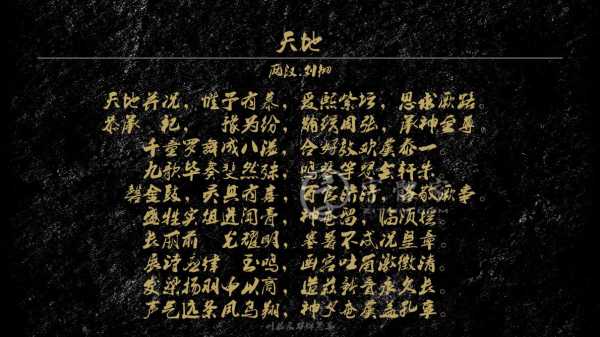 天地
两汉·刘彻
天地并况,惟予有慕,爰熙紫坛,思求厥路。
恭承 祀, 豫为纷,黼绣周张,承神至尊。
千童罗舞成八溢,合好效欢虞泰一。
九歌毕奏斐然殊,鸣琴竽瑟会轩朱。
磬金鼓,灵其有喜,百官济济,各敬厥事。
盛牲实俎进闻膏,神奄留,临须摇。
长丽前 光耀明,寒暑不忒况皇章。
展诗应律 玉鸣,函宫吐角激徵清。
发梁扬羽申以商,造兹新音永久长。
声气远条凤鸟翔,神夕奄虞盖孔享。